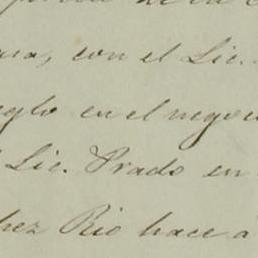 con el Lic.
en el negoci
Lic. Prado en
hez Rio hace a